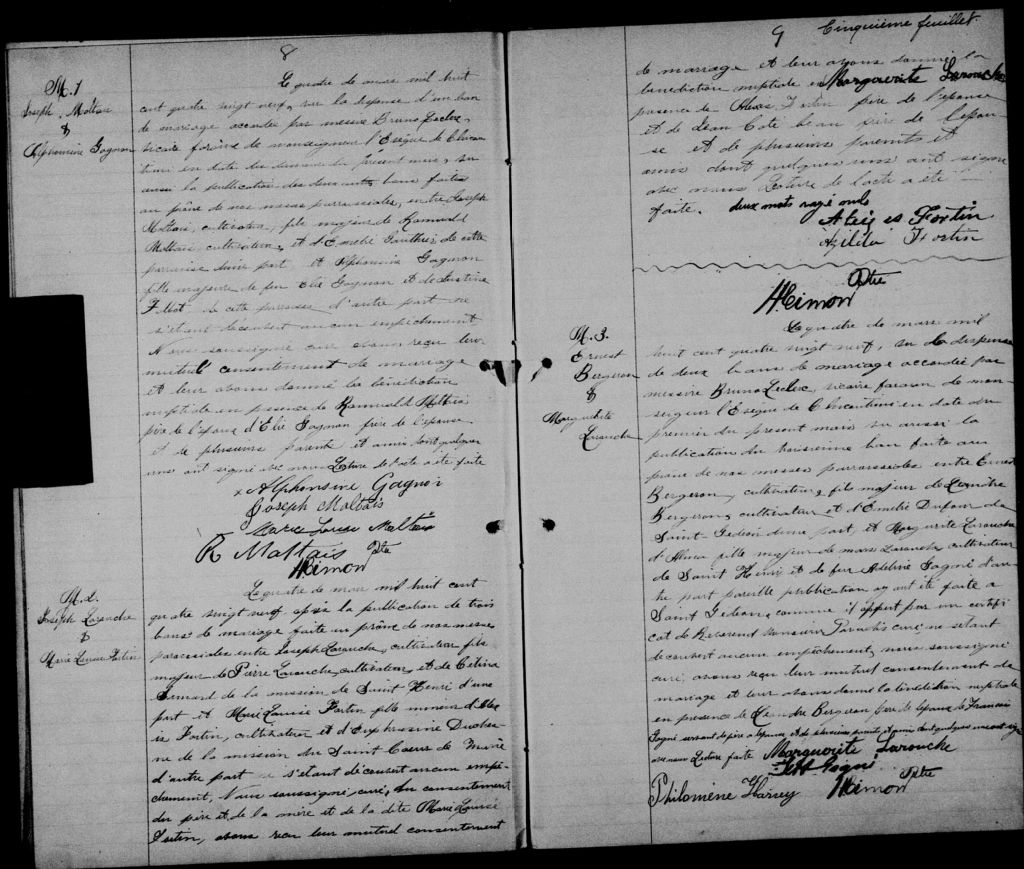 8
M. 1
Joseph Maltais
&
Alphonsine Gagnon
Le quatre de mars mil huit
cent quatre vingt neuf, vu la dispense d'un ban
de mariage accordée par messire Bruno Leclerc
vicaire forain de monseigneur l'Evêque de Chicou
timi en date du du present mois, vu
aussi la publication des deux autres bans faites
au prône de nos messes paroissiales, entre Joseph
Maltais, cultivateur, fils majeur de Romuald
Maltais, cultivateur, et d'Emelie Gauthier de cette
paroisse d'une part et Alphonsine Gagnon
fille majeure de feu Elie Gagnon et de Justine
de cette paroisse d'autre part ne
s'etant decouvert aucun empêchement
Nous soussigné curé avons reçu leur
mutuel consentement de mariage
et leur avons donné la bénédiction
nuptiale en presence de Romuald Maltais
père de l'epoux d'Elie Gagnon frere de l'epouse
et de plusieurs parents et amis dont quelques
uns ont signé avec nous Lecture de l'acte a été faite
x Alphonsine Gagnon
Joseph Maltais
Marie Louise Maltais
R Maltais Ptre
M. 2.
Joseph Larouche
&
Marie Louise Fortin
Le quatre de mars mil huit cent
quatre vingt neuf après la publication de trois
bans de mariage faite au prône de nos messes
paroissiales entre Joseph Larouche, cultivateur fils
majeur de Pierre Larouche, cultivateur, et de Célina
Simard de la mission de Saint Henri d'une
part et Marie Louise Fortin fille mineure d'Alex
is Fortin, cultivateur et d'Euphrosine Duches
ne de la mission du Saint Coeur de Marie
d'autre part ne s'etant découvert aucun empê-
chement, Nous soussigné, curé, du consentement
du père et de la mère et de la dite Marie Louise
Fortin, avons reçu leur mutuel consentement
9 Cinquième feuillet
de mariage et leur avons donné la
benediction nuptiale en Marguerite Larouche
presence de Alexis Fortin père de l'epouse
et de Jean Coté beau père de l'epou
se et de plusieurs parents et
amis dont quelques uns ont signé
avec nous Lecture de l'acte a été
faite. deux mots rayé nuls
Alexis Fortin
Azilda Fortin
Ptre
M. 3.
Ernest
Bergeron
&
Marguerite
Larouche
Le quatre de mars mil
huit cent quatre vingt neuf, vu la dispense
de deux bans de mariage accordée par
messire Bruno Leclerc, vicaire forain de mon-
seigneur l'Evêque de Chicoutimi en date du
premier du present mois vu aussi la
publication du troisième ban faite au
prône de nos messes paroissiales entre Ernest
Bergeron, cultivateur, fils majeur de Leandre
Bergeron, cultivateur et d'Emelie Dufour de
Saint-Gedeon d'une part, et Marguerite Larouche
d'Alma fille majeur de Larouche, cultivateur
de Saint Henri et de feu Adeline Gagné d'au-
tre part pareille publication ayant été faite a
Saint Gedeon, comme il appert par un certifi
cat du Reverend monsieur Paradis curé, ne s'etant
decouvert aucun empêchement, nous soussigné
curé, avons reçu leur mutuel consentement de
mariage et leur avons donné la benediction nuptiale
en presence de Leandre Bergeron père de l'epoux de Francois
Gagné servant de père a l'epouse et de plusieurs parents et amis dont quelques uns ont signé
avec nous Lecture faite Marguerite Larouche
Gagné
Philomene Harvey Ptre